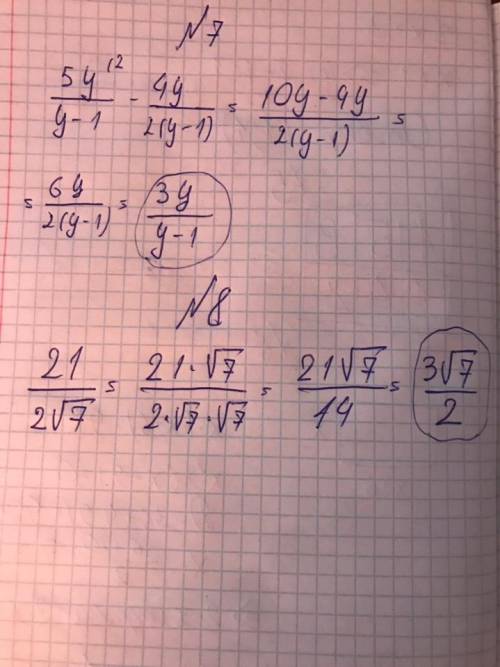 №7
5y/(y-1) ^(2 - 4y/(2(y-1)) = (10y-4y)/(2(y-1)) =
= 6y/(2(y-1)) = 3y/(y-1)
№8
21/(2√7) = (21·√7)/(2·√7·√7) = 21√7/14 = 3√7/2